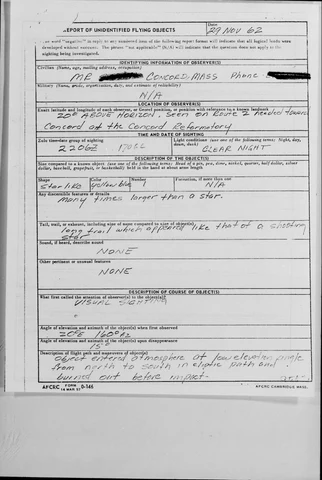 REPORT OF UNIDENTIFIED FLYING OBJECTS
Date
29 NOV 62
developed without comment. The phrase "not applicable" (N/A) will indicate that the question does not apply to the
sighting being investigated.
IDENTIFYING INFORMATION OF OBSERVER(S)
Civilian (Name, age, mailing address, occupation)
MR CONCORD, MASS Phone
Military (Name, grade, organization, duty, and estimate of reliability)
N/A
LOCATION OF OBSERVER(S)
Exact latitude and longitude of each observer, or Georef position, or position with reference to a known landmark
20° ABOVE HORIZON, seen on Route 2 headed toward
Concord at the Concord Reformatory
TIME AND DATE OF SIGHTING
Zulu time-date group of sighting
Light conditions (use one of the following terms: Night, day, dawn, dusk)
2206Z
CLEAR NIGHT
DESCRIPTION OF THE OBJECT(S)
Size compared to a known object (use one of the following terms: Head of a pin, pea, dime, nickel, quarter, half dollar, silver
dollar, baseball, grapefruit, or basketball) held in the hand at about arms length
Shape Color Number Formation, if more than one
star like yellow blue 1 N/A
Any discernible features or details
Many times larger than a star.
Tail, trail, or exhaust, including size of same compared to size of object(s)
long trail which appeared like that of a shooting
star
Sound, if heard, describe sound
NONE
Other pertinent or unusual features
NONE
DESCRIPTION OF COURSE OF OBJECT(S)
What first called the attention of observer(s) to the object(s)?
VISUAL SIGHTING
Angle of elevation and azimuth of the object(s) when first observed
20°E 160° AZ
Angle of elevation and azimuth of object(s) upon disappearance
15°
Description of flight path and maneuvers of object(s)
Object entered atmosphere at low elevation angle
from north to south in eliptic path and
burned out before impact.
AFCRC FORM 0-146
AFCRC CAMBRIDGE MASS.